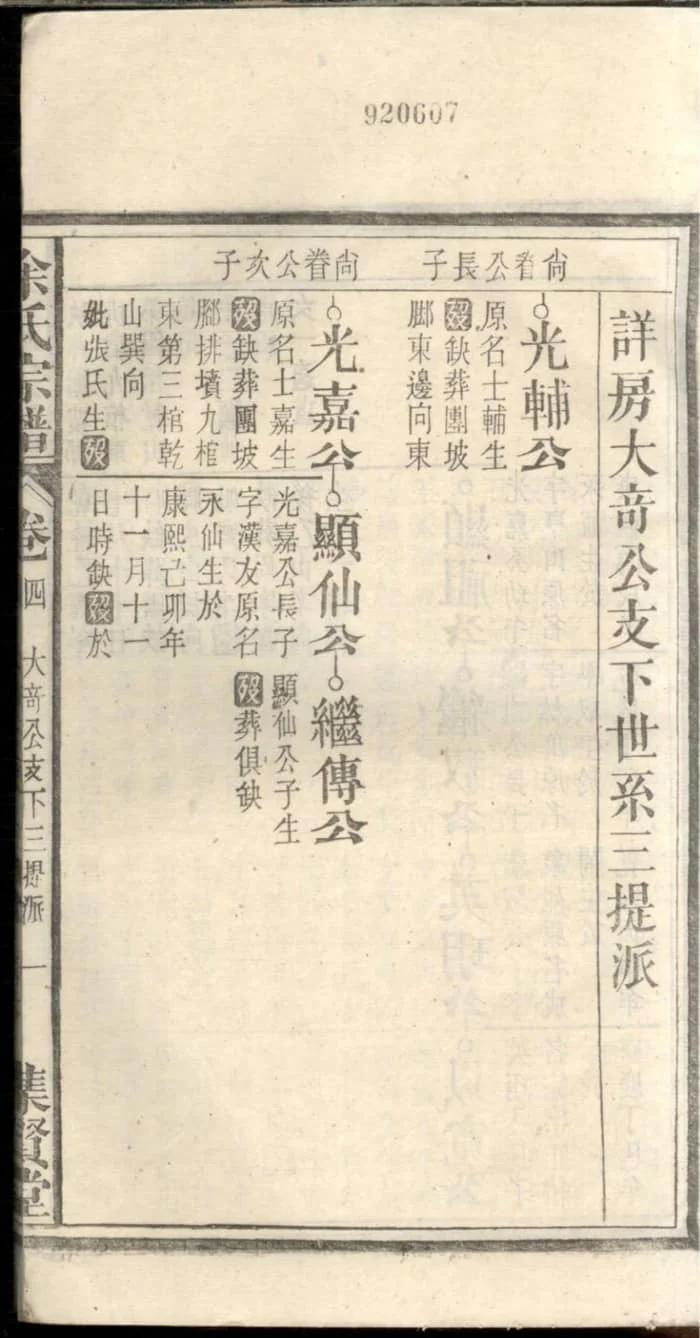 920607
詳房大竒公支下世系三提派
尙眷公長子
光輔公
原名士輔生
歿缺葬團坡
腳東邊向東
尙眷公次子
光嘉公
原名士嘉生
歿缺葬團坡
腳排墳九棺
東第三棺乾
山巽向
妣張氏生歿
顯仙公
光嘉公長子
字漢友原名
永仙生於
康熙己卯年
十一月十一
日時缺歿於
繼傳公
顯仙公子生
歿葬俱缺
氏宗譜
卷四
大竒公支下三提派
一
集賢堂